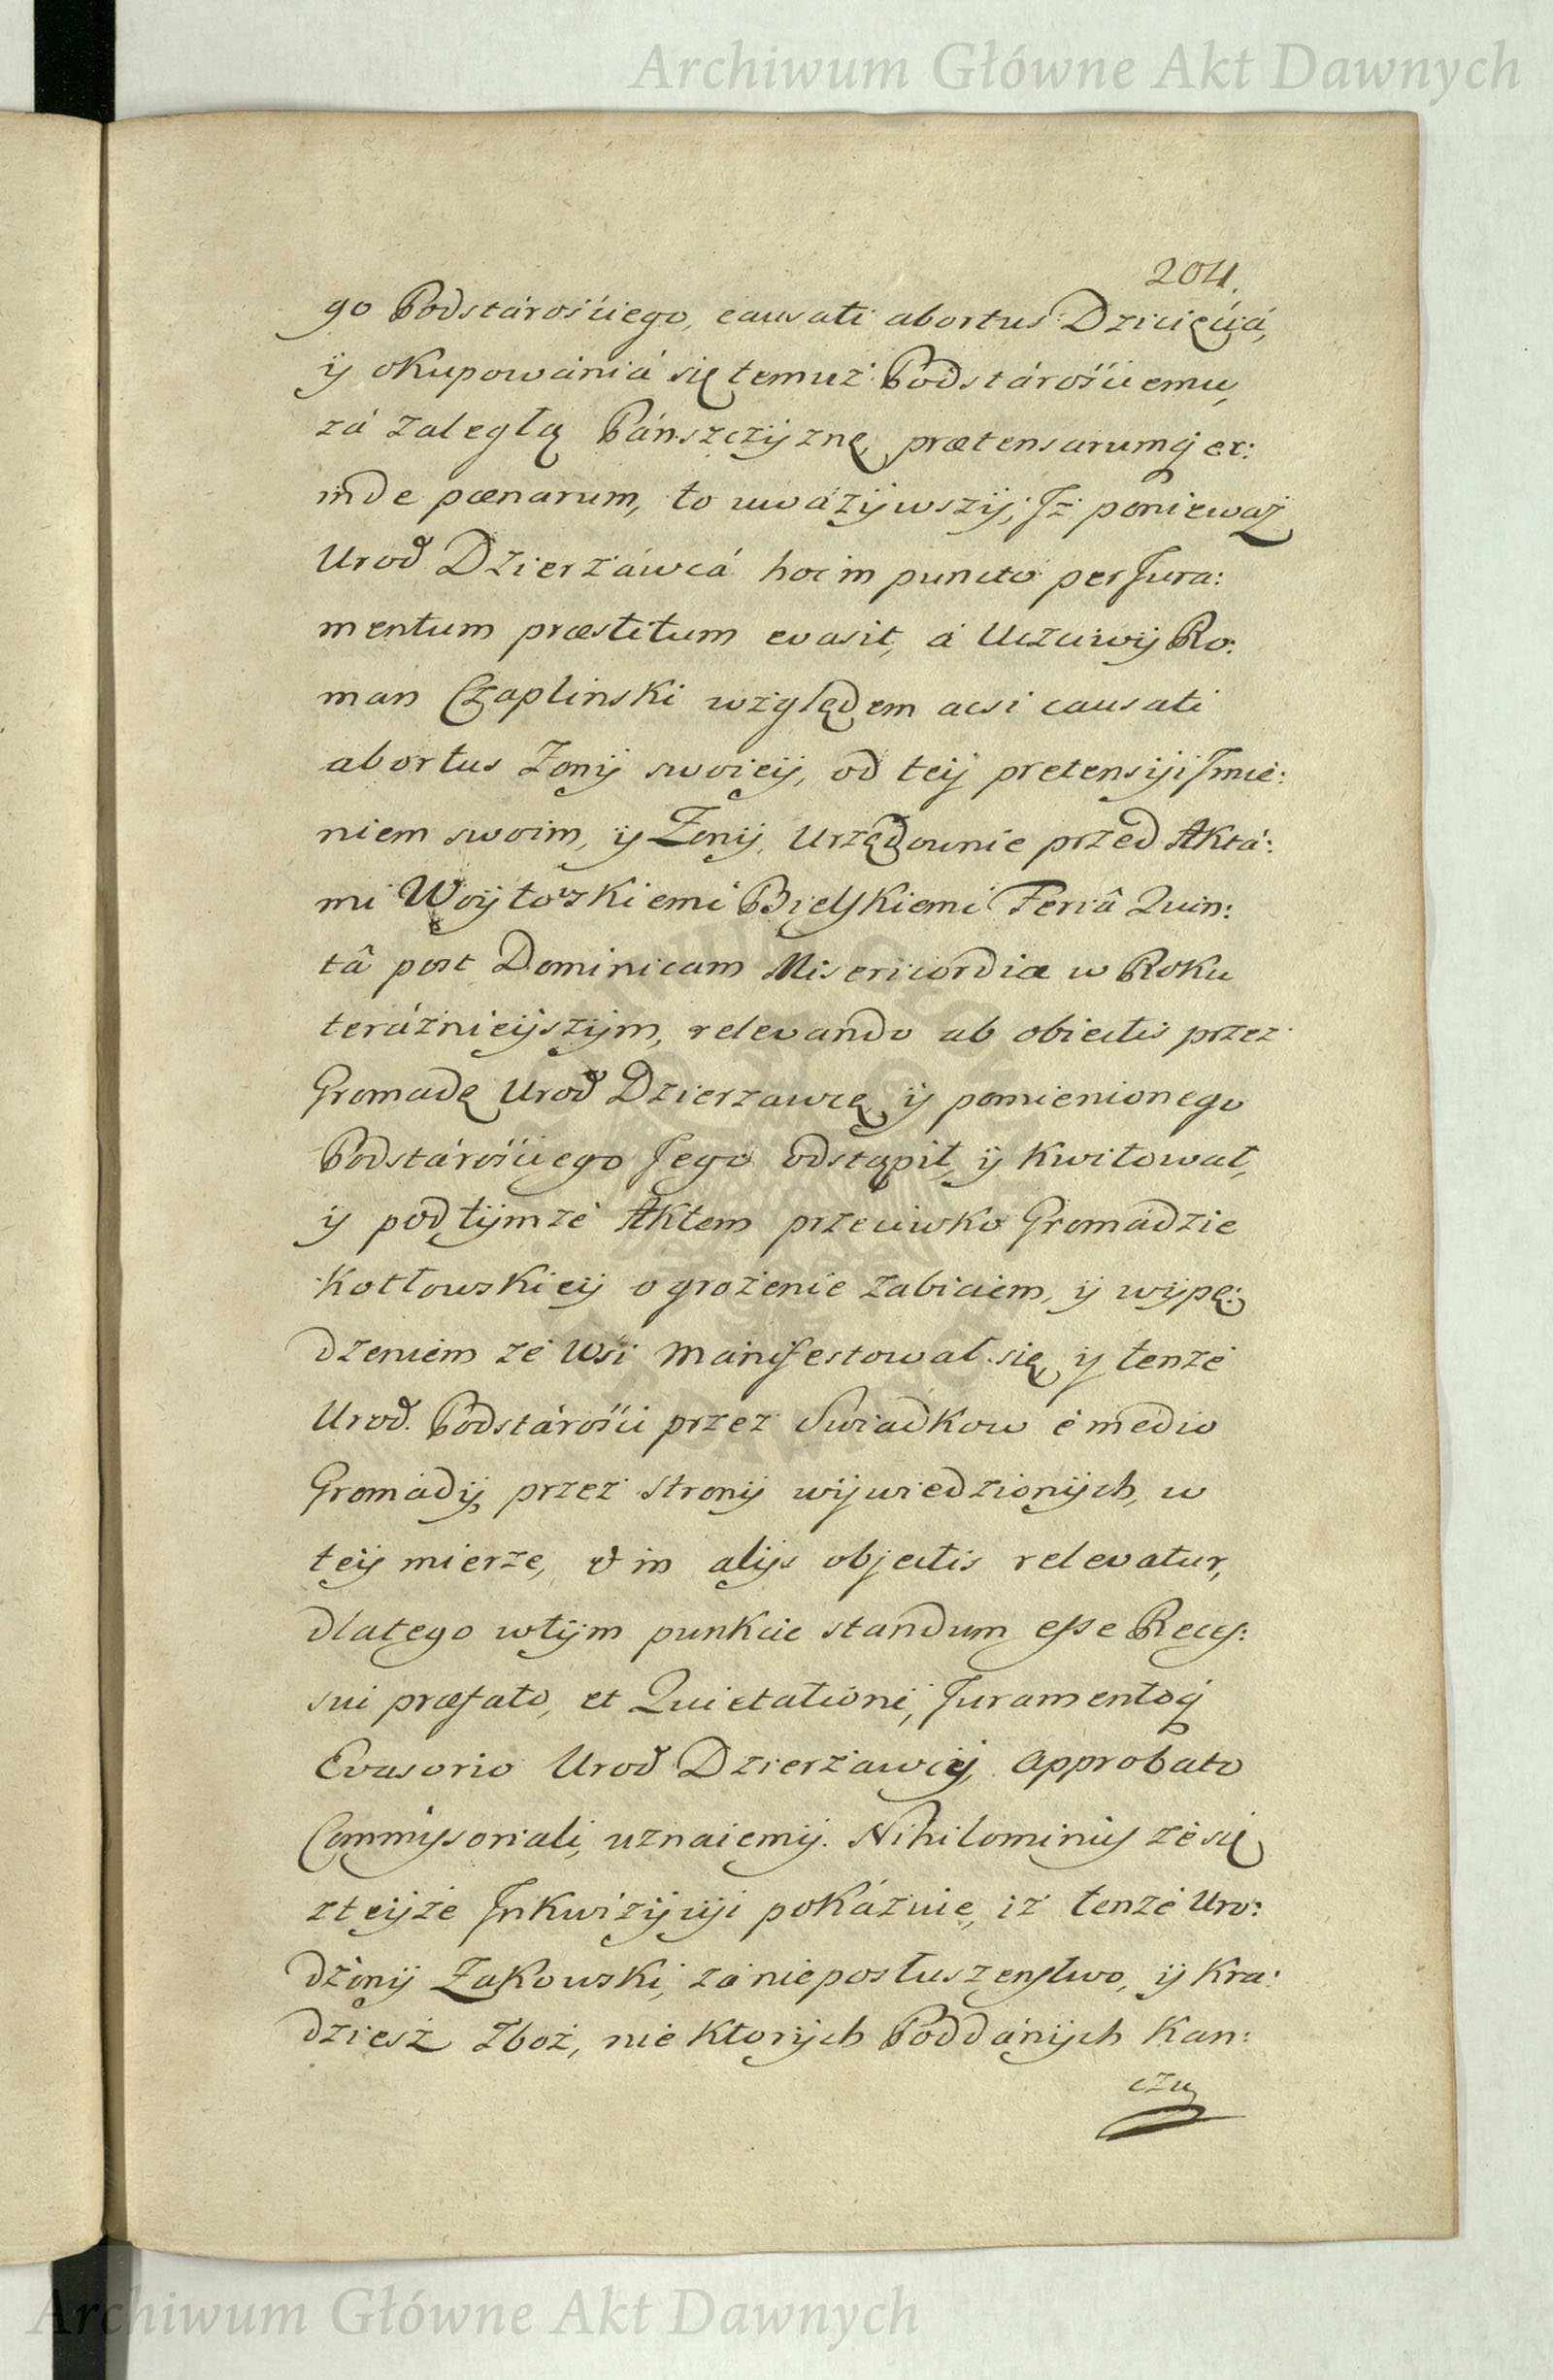 Archiwum Główne Akt Dawnych
204.
go Podstárośćiego, causati abortus Dziecięćiá,
ÿ okupowániá się temuż Podstárośćiemu,
zá zaległą Pánszczÿznę, prætensarumq̃ ex:
inde pœnarum, to uwáżÿwszÿ; Jż ponieważ
Urod Dzierżáwcá hoc in puncto per Jura:
mentum præstitum evasit, á Uczciwÿ Ro:
man Czaplinski względem acsi causati
abortus Żonÿ swoieÿ, od teÿ pretensÿi Jmie:
niem swoim, ÿ Żonÿ, Urzędownie przed Aktá:
mi Woÿtowskiemi Bielskiemi Feriâ Quin:
tâ post Dominicam Misericordiæ w Roku
teráźnieÿszÿm, relevando ab obiectis przez
Gromadę Urod Dzierżawcę ÿ pomienionego
Podstárośćiego Jego odstąpił, ÿ kwitował,
ÿ pod tÿmże Aktem przeciwko Gromádzie
Kotłowskieÿ o grożenie zabiciem, ÿ wÿpę:
dzeniem ze Wśi manifestował się, ÿ tenże
Urod. Podstárośći przez Swiadkow é medio
Gromádÿ, przez Stronÿ wÿwiedzionÿch, w
teÿ mierze, & in alÿs objectis relevatur,
dlatego w tÿm punkcie standum esse Reces:
sui præfato, et Quietationi, Juramentoq̃
Evasorio Urod Dzierżawcÿ, approbato
Commissoriali, uznaiemÿ. Nihilominus że się
z teÿże Jnkwizÿcÿi pokázuie, iż tenże Uro:
dzonÿ Żakowski, zá nieposłuszenstwo, ÿ kra:
dziesz Zboż, niektorÿch Poddánÿch Kan:
czu
Archiwum Główne Akt Dawnych